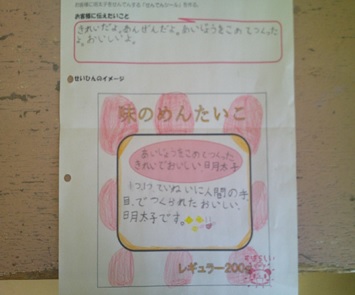 お客様に伝えたいこと
きれいだよ。あんぜんだよ。あいじょうをこめてつくった
よ。おいしいよ。
せいひんのイメージ
味のめんたいこ
あいじょうをこめてつくった
きれいでおいしい明太子
1つ1つていねいに人間の手、
目、でつくられたおいしい、
明太子です。
レギュラー200g